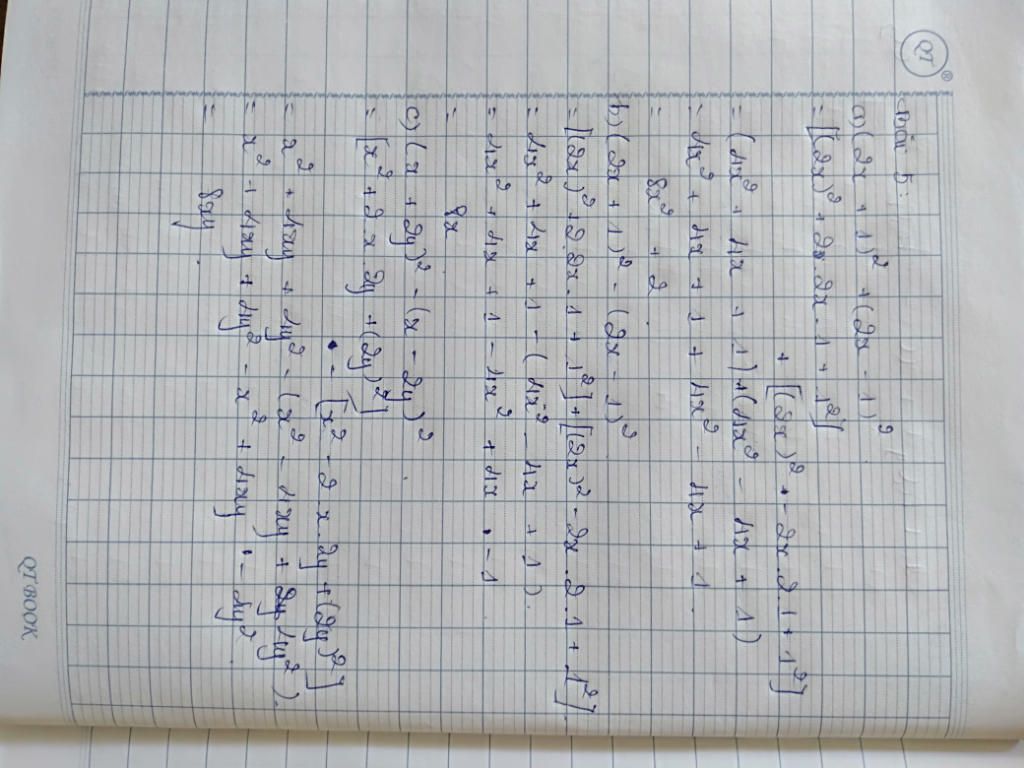 QT ®
Bài 5:
a) (2x + 1)² + (2x - 1)²
= [(2x)² + 2x.2x.1 + 1²]
+ [(2x)² + -2x.2.1 + 1²]
= (4x² + 4x + 1) + (4x² - 4x + 1)
= 4x² + 4x + 1 + 4x² - 4x + 1
= 8x² + 2
b) (2x + 1)² - (2x - 1)²
= [2x)² + 2.2x.1 + 1²] + [(2x)² - 2x.2.1 + 1²].
= 4x² + 4x + 1 - (4x² - 4x + 1).
= 4x² + 4x + 1 - 4x² + 4x - 1
= 8x
c) (x + 2y)² - (x - 2y)²
= [x² + 2.x.2y + (2y)²]
- [x² - 2.x.2y + (2y)²]
= x² + 4xy + 4y² - (x² - 4xy + 4y²).
= x² + 4xy + 4y² - x² + 4xy - 4y²
= 8xy
QT BOOK